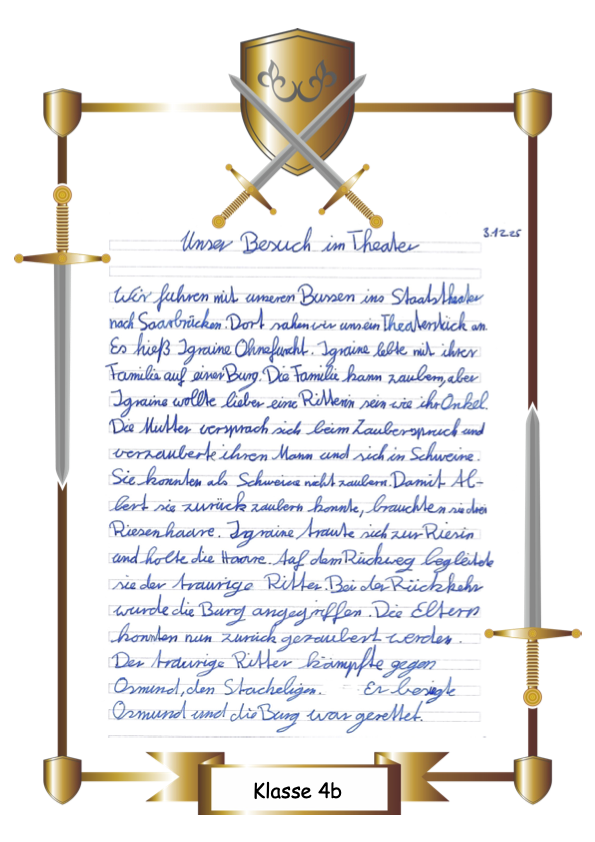 3.12.25
Unser Besuch im Theater
Wir fuhren mit unseren Bussen ins Staatstheater
nach Saarbrücken. Dort sahen wir uns ein Theaterstück an.
Es hieß Igraine Ohnefurcht. Igraine lebte mit ihrer
Familie auf einer Burg. Die Familie kann zaubern, aber
Igraine wollte lieber eine Ritterin sein wie ihr Onkel.
Die Mutter versprach sich beim Zauberspruch und
verzauberte ihren Mann und sich in Schweine.
Sie konnten als Schweine nicht zaubern. Damit Al-
bert sie zurück zaubern konnte, brauchten sie drei
Riesenhaare. Igraine traute sich zur Riesin
und holte die Haare. Auf dem Rückweg begleitete
sie der traurige Ritter. Bei der Rückkehr
wurde die Burg angegriffen. Die Eltern
konnten nun zurück gezaubert werden.
Der traurige Ritter kämpfte gegen
Osmund, den Stacheligen. Er besiegte
Osmund und die Burg war gerettet.
Klasse 4b